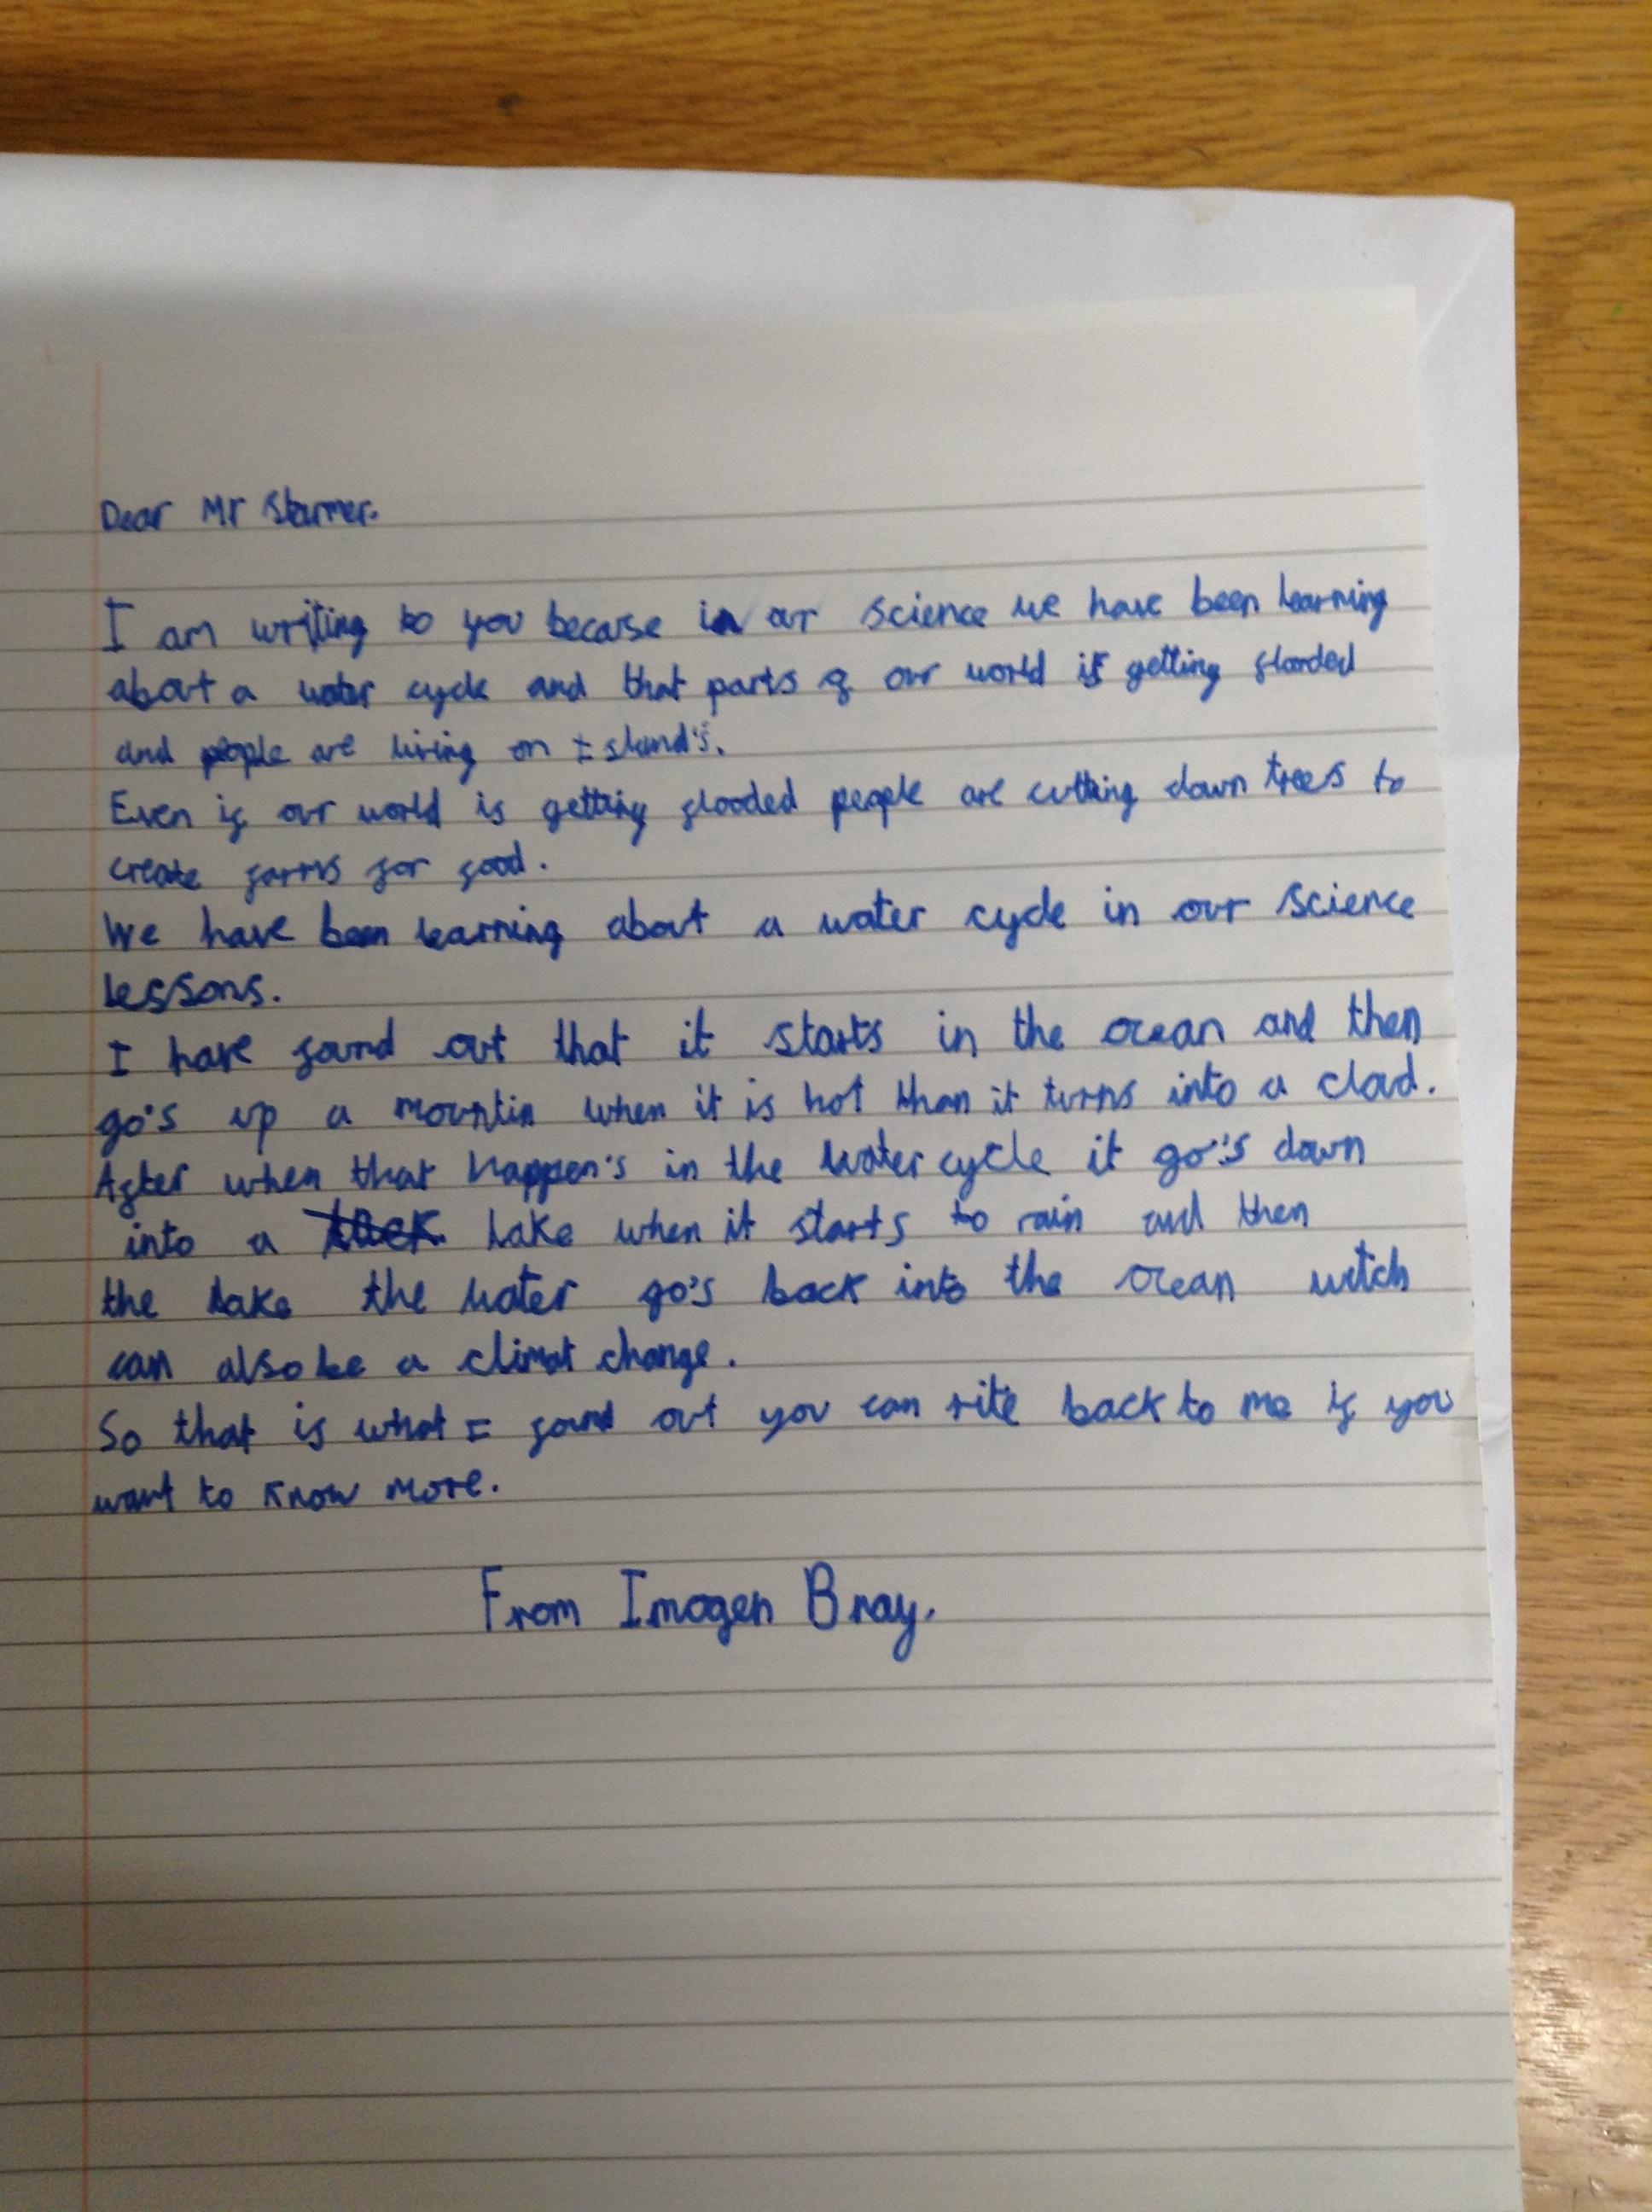 Dear Mr Starmer.
I am writing to you because in our science we have been learning
about a water cycle and that parts of our world is getting flooded
and people are living on Island's.
Even if our world is getting flooded people are cutting down trees to
create farms for food.
We have been learning about a water cycle in our science
lessons.
I have found out that it starts in the ocean and then
go's up a mountin when it is hot than it turns into a cloud.
After when that happen's in the water cycle it go's down
into a lake when it starts to rain and then
the lake the water go's back into the ocean witch
can also be a climat change.
So that is what I found out you can rite back to me if you
want to know more.
From Imogen Bray.